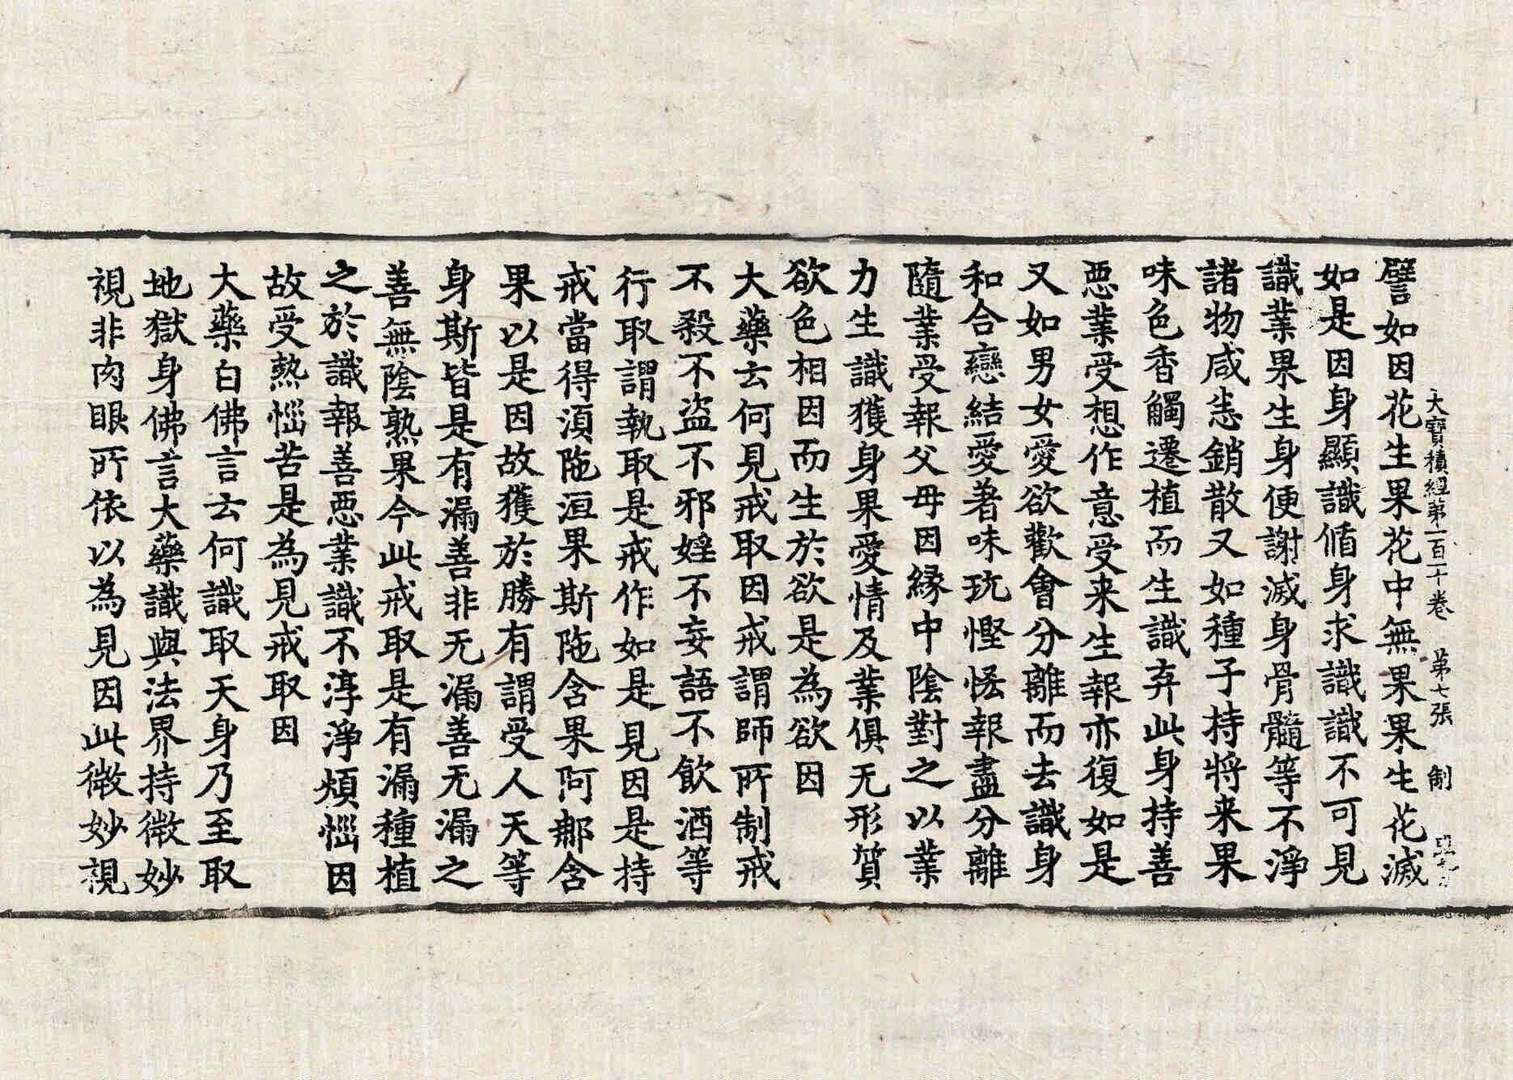 大寶積經第一百一十卷 第七張 制
譬如因花生果花中無果果生花滅
如是因身顯識循身求識識不可見
識業果生身便謝滅身骨髓等不淨
諸物咸恙銷散又如種子持將来果
味色香觸遷植而生識弃此身持善
惡業受想作意受来生報亦復如是
又如男女愛欲歡會分離而去識身
和合戀結愛著味玩慳恡報盡分離
隨業受報父母因緣中陰對之以業
力生識獲身果愛情及業俱无形質
欲色相因而生於欲是為欲因
大藥云何見戒取因戒謂師所制戒
不殺不盜不邪婬不妄語不飲酒等
行取謂執取是戒作如是見因是持
戒當得湏陁洹果斯陁含果阿那含
果以是因故獲於勝有謂受人天等
身斯皆是有漏善非无漏善无漏之
善無陰熟果今此戒取是有漏種植
之於識報善惡業識不淳淨煩惱因
故受熱惱苦是為見戒取因
大藥白佛言云何識取天身乃至取
地獄身佛言大藥識與法界持微妙
視非肉眼所依以為見因此微妙視